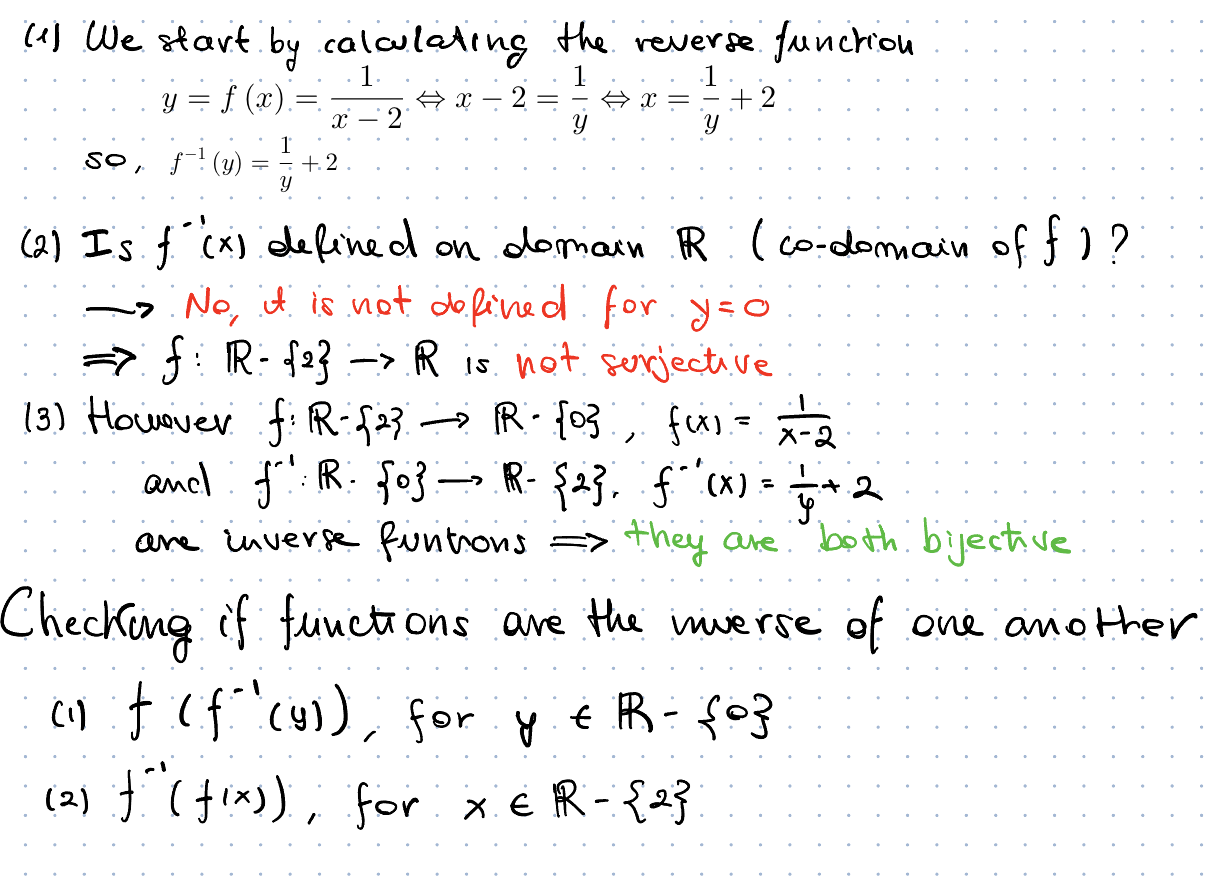 (1) We start by calculating the reverse function
y = f (x) = 1/(x − 2) ⇔ x − 2 = 1/y ⇔ x = 1/y + 2
so, f⁻¹ (y) = 1/y + 2
(2) Is f⁻¹(x) defined on domain ℝ (co-domain of f)?
→ No, it is not defined for y=0
⇒ f: ℝ-{2} → ℝ is not surjective
(3) However f: ℝ-{2} → ℝ-{0}, f(x) = 1/(x-2)
and f⁻¹: ℝ-{0} → ℝ-{2}, f⁻¹(x) = 1/y + 2
are inverse funtions ⇒ they are both bijective
Checking if functions are the inverse of one another
(1) f(f⁻¹(y)), for y ∈ ℝ-{0}
(2) f⁻¹(f(x)), for x ∈ ℝ-{2}